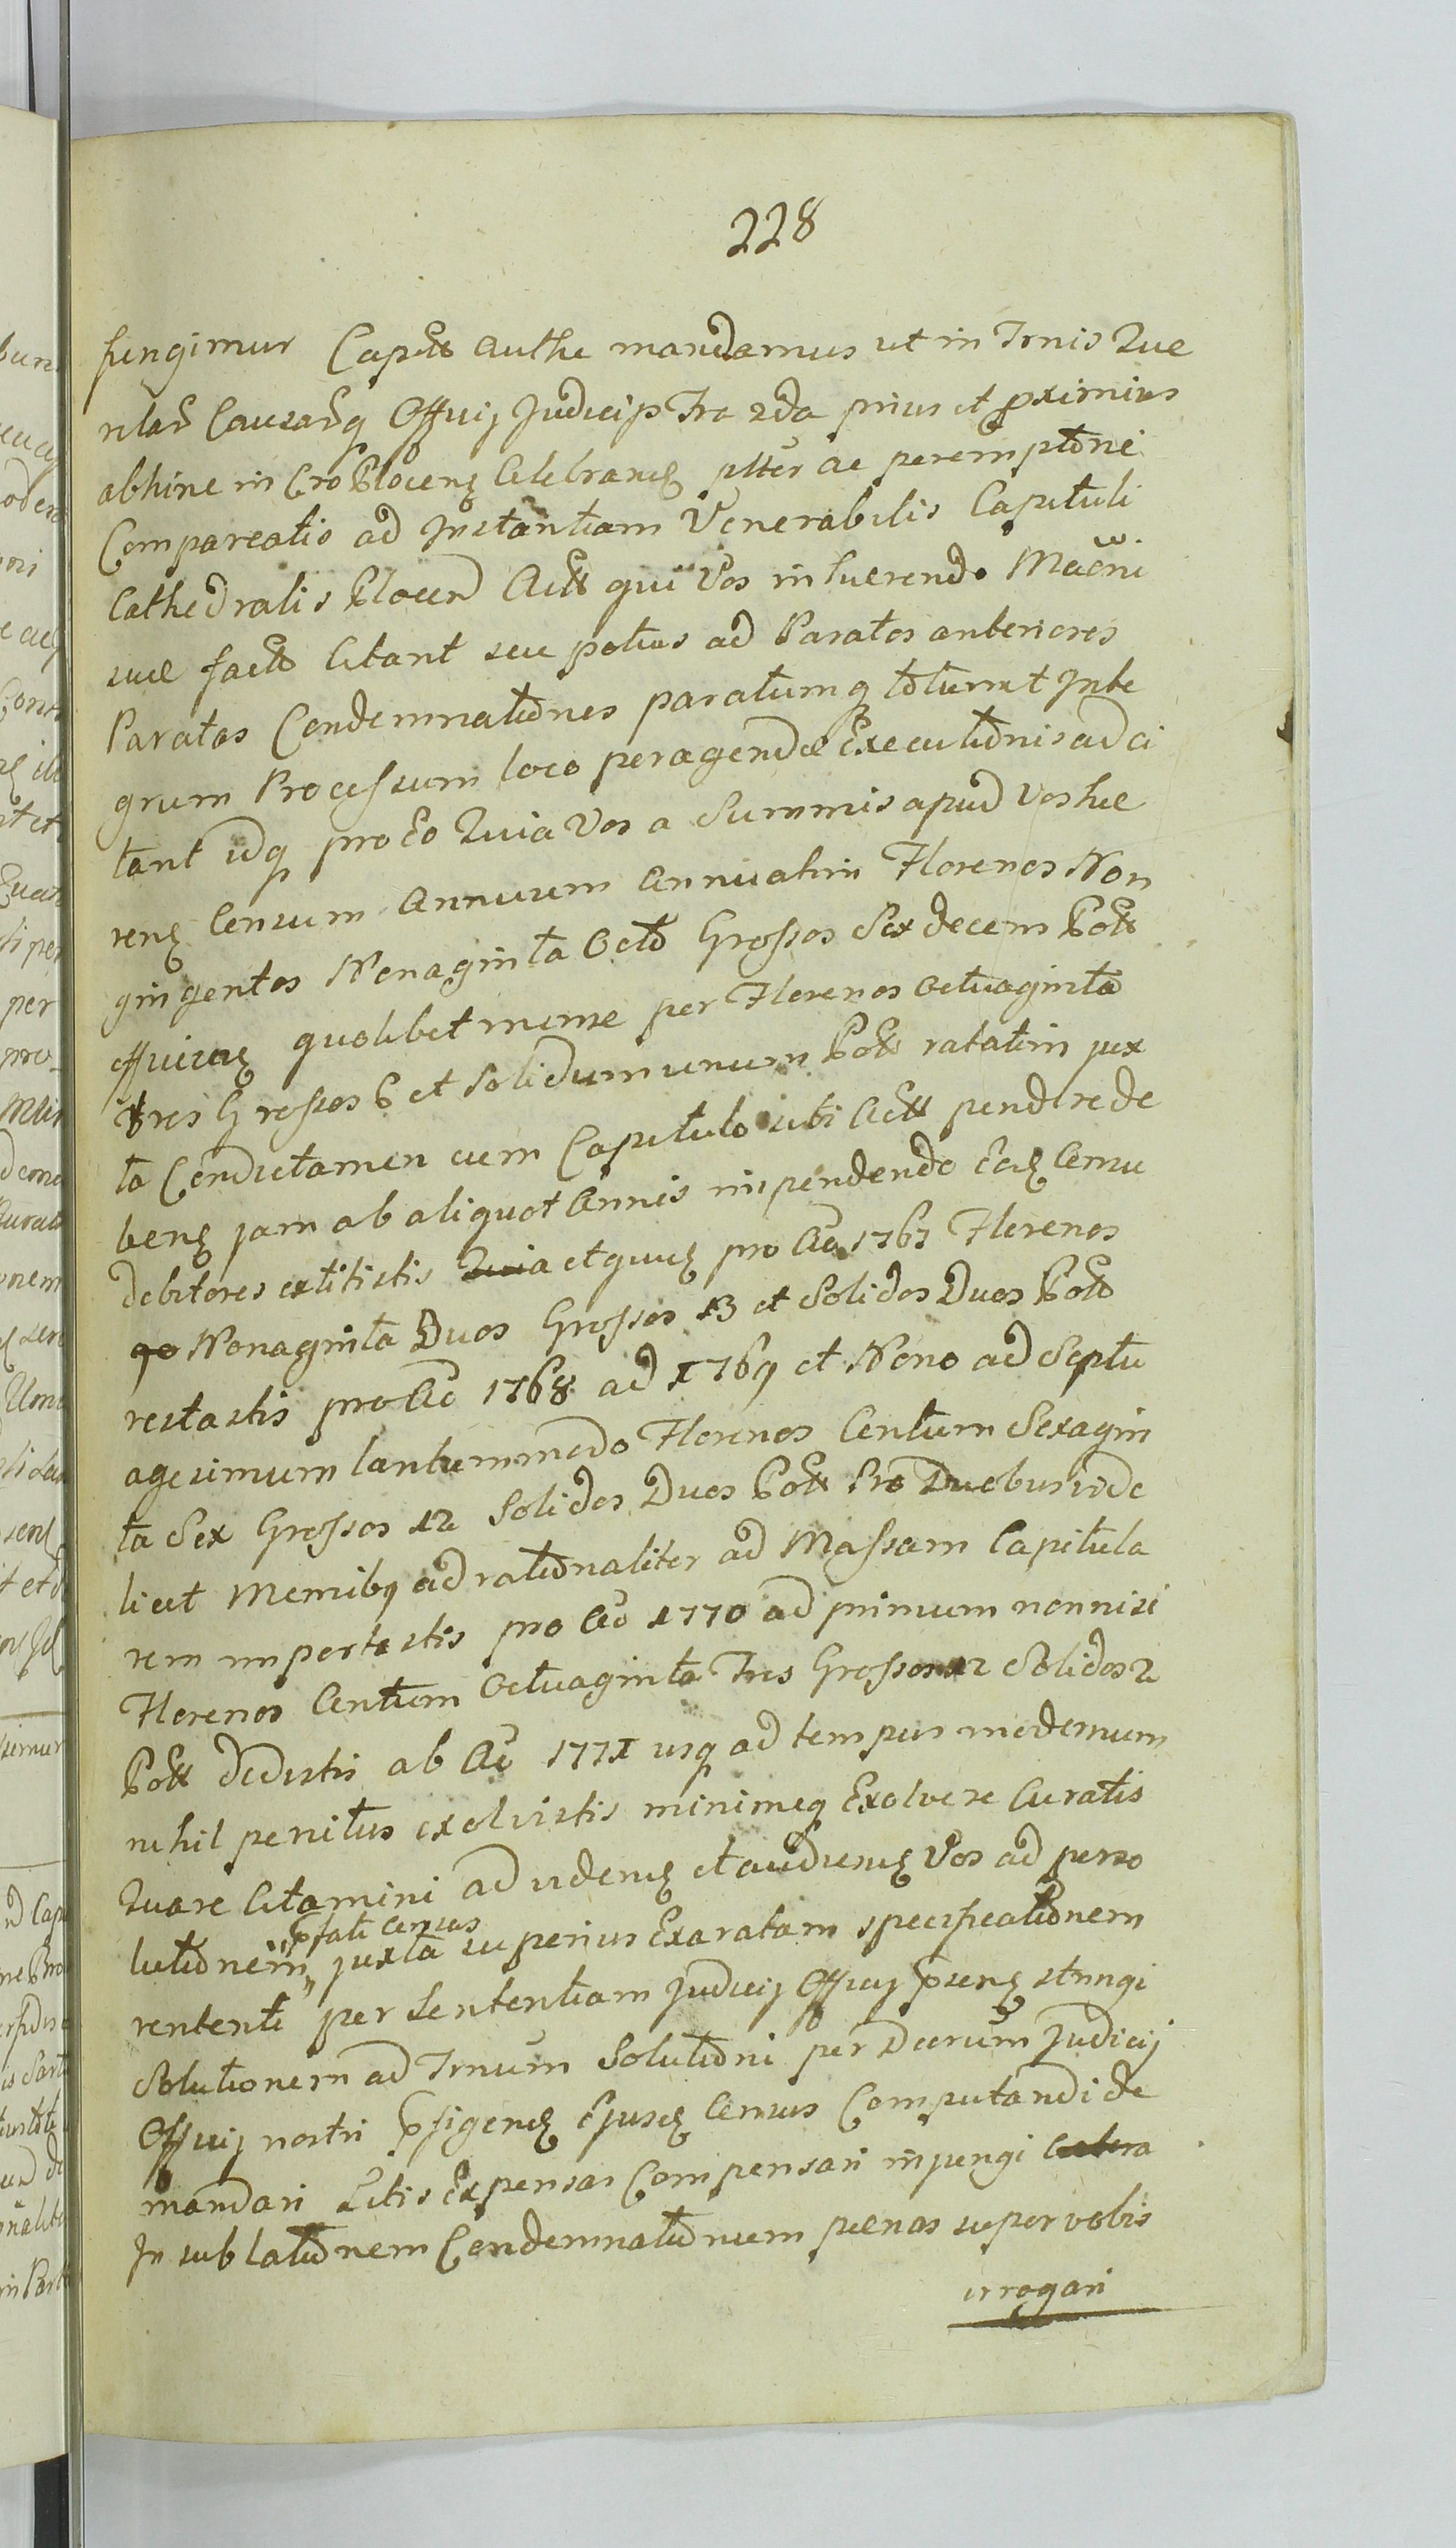 228
fungimur Captt authe mandamus ut in Trnis Que
rlar Causarq Officij Judicijs Fra 2da prius et pximius
abhinc in Cro Plocen Celebran pltter ac peremptorie
Compareatis ad Instantiam Venerabilis Capituli
Cathedralis Plocen Actt qui Vos inhaerendo
suae factt Citant seu potius ad Paratas anteriores
Paratas Condemnationes paratumq totum et Inte
grum Processum loco peragendae Executionis adci
tant idq pro Eo Quia Vos a Summis apud Vos hae
ren Censum Annuum Annuatim Florenos Non
gingentos Nonaginta Octo Grossos Sexdecem Poll
efficien quolibet mense per Florenos Octuaginta
tres Grossos 6 et Solidum unum Poll ratatim jux
ta Condictamen cum Capitulo ubi Actt pendere de
ben jam ab aliquot Annis impendendo Ejus Censu
debitores extitistis Quia et quus pro Ao 1767 Florenos
90 Nonaginta Duos Grossos 13 et Solidos Duos Poll
restastis pro Ao 1768 ad 1769 et Nono ad Septu
agesimum tantummodo Florenos Centum Sexagin
ta Sex Grossos 12 Solidos Duos Poll Pro Duobus vide
licet Mensibq ad rationaliter ad Massam Capitula
rem importastis pro Ao 1770 ad primum nonnisi
Florenos Centum Octuaginta Tres Grossos 12 Solidos 2
Poll dedistis ab Ao 1771 usq ad tempus modernum
nihil penitus exolvistis minimeq Exolvere Curatis
Quare Citamini ad viden et audien Vos ad perso
pfati Census
lutionem juxta superius Exaratam specificationem
rententi per Sententiam Judicij Officij psens stringi
Solutionem ad Trnum Solutioni per Decrum Judicij
Officij nostri pfigen Ejus Census Computandi de
mandari Litis Expensas Compensari injungi Caetera
In sublationem Condemnationum paenas super vobis
irrogari